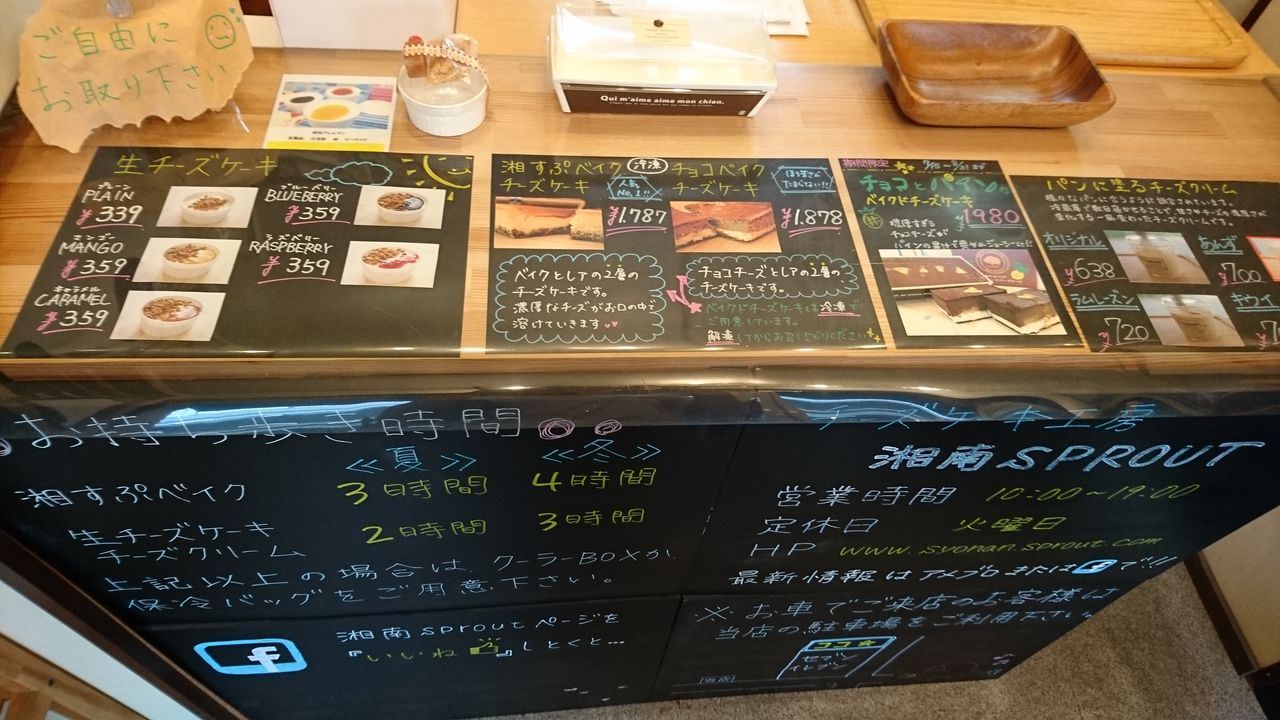 ご自由に
お取り下さい
Qui m'aime aime mon chien.
生チーズケーキ
プレーン
PLAIN
¥339
ブルーベリー
BLUEBERRY
¥359
マンゴー
MANGO
¥359
ラズベリー
RASPBERRY
¥359
キャラメル
CARAMEL
¥359
湘すぷベイク
チーズケーキ
冷凍
人気
No.1!!
¥1,787
ベイクとレアの2層の
チーズケーキです。
濃厚なチーズがお口の中で
溶けていきます
チョコベイク
チーズケーキ
ほろ苦さが
たまらない!!
¥1,878
チョコチーズとレアの2層の
チーズケーキです。
ベイクドチーズケーキは冷凍で
ご用意しています。
解凍してからお召し上がりください
期間限定
チョコとパインの
ベイクドチーズケーキ
¥1980
濃厚すぎる
チョコチーズが
パンに塗るチーズクリーム
オリジナル
¥638
あんず
¥700
ラムレーズン
¥720
キウイ
お持ち歩き時間
≪夏≫
≪冬≫
湘すぷベイク 3時間 4時間
生チーズケーキ
チーズクリーム 2時間 3時間
上記以上の場合は、クーラーBOXか、
保冷バッグをご用意下さい。
チーズケーキ工房
湘南SPROUT
営業時間 10:00~19:00
定休日 火曜日
HP www.syonan.sprout.com
最新情報はアメブロまたはfで!!
f
湘南sproutページを
『いいね』しとくと…
※お車でご来店のお客様は
当店の駐車場をご利用下さい
ココ★
セブン
イレブン
当店